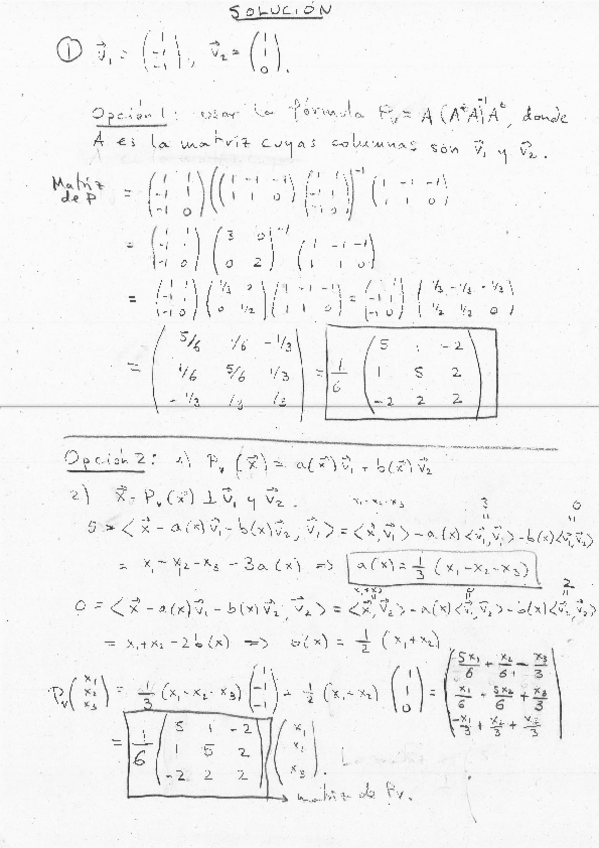 SOLUCIÓN
① v⃗₁ = (1 -1 -1), v⃗₂ = (1 1 0).
Opción 1: usar la fórmula Pᵥ = A(AᵗA)⁻¹Aᵗ, donde
A es la matriz cuyas columnas son v⃗₁ y v⃗₂.
Matriz de P = (1 1; -1 1; -1 0) ((1 -1 -1; 1 1 0) (1 1; -1 1; -1 0))⁻¹ (1 -1 -1; 1 1 0)
= (1 1; -1 1; -1 0) (3 0; 0 2)⁻¹ (1 -1 -1; 1 1 0)
= (1 1; -1 1; -1 0) (1/3 0; 0 1/2) (1 -1 -1; 1 1 0) = (1 1; -1 1; -1 0) (1/3 -1/3 -1/3; 1/2 1/2 0)
= (5/6 1/6 -1/3; 1/6 5/6 1/3; -1/3 1/3 1/3) = 1/6 (5 1 -2; 1 5 2; -2 2 2)
Opción 2: 1) Pᵥ(x⃗) = a(x⃗)v⃗₁ + b(x⃗)v⃗₂
2) x⃗ - Pᵥ(x⃗) ⊥ v⃗₁ y v⃗₂.
x₁-x₂-x₃ 3 0
0 = <x⃗ - a(x)v⃗₁ - b(x)v⃗₂, v⃗₁> = <x⃗,v⃗₁> - a(x)<v⃗₁,v⃗₁> - b(x)<v⃗₁,v⃗₂>
= x₁-x₂-x₃ - 3a(x) => a(x) = 1/3 (x₁-x₂-x₃)
x₁+x₂ 0 2
0 = <x⃗ - a(x)v⃗₁ - b(x)v⃗₂, v⃗₂> = <x⃗,v⃗₂> - a(x)<v⃗₁,v⃗₂> - b(x)<v⃗₂,v⃗₂>
= x₁+x₂ - 2b(x) => b(x) = 1/2 (x₁+x₂)
Pᵥ(x₁ x₂ x₃) = 1/3 (x₁-x₂-x₃) (1 -1 -1) + 1/2 (x₁+x₂) (1 1 0) = (5x₁/6 + x₂/6 - x₃/3; x₁/6 + 5x₂/6 + x₃/3; -x₁/3 + x₂/3 + x₃/3)
= 1/6 (5 1 -2; 1 5 2; -2 2 2) (x₁ x₂ x₃).
matriz de Pᵥ.